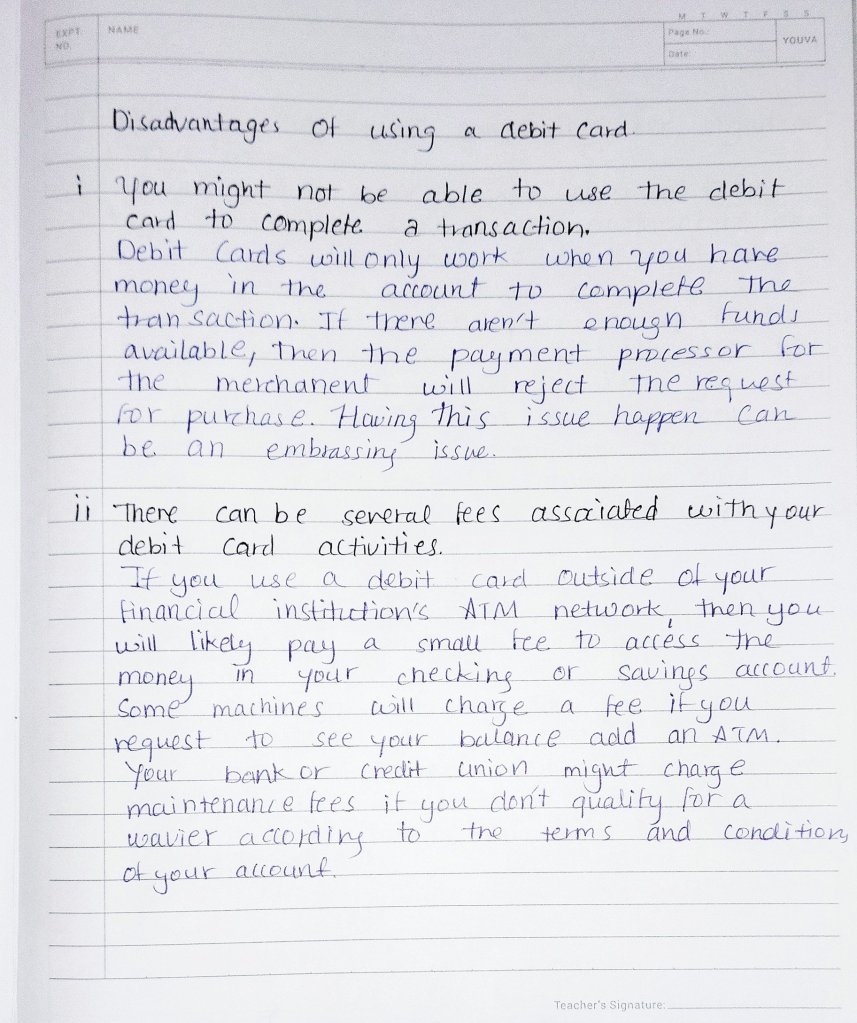 M T W T F S S
EXPT. NO.
NAME
Page No.:
YOUVA
Date:
Disadvantages of using a debit card.
i You might not be able to use the debit
card to complete a transaction.
Debit Cards will only work when you have
money in the account to complete the
transaction. If there aren't enough funds
available, then the payment processor for
the merchanent will reject the request
for purchase. Having this issue happen can
be an embrassing issue.
ii There can be several fees associated with your
debit card activities.
If you use a debit card outside of your
financial institution's ATM network, then you
will likely pay a small fee to access the
money in your checking or savings account.
Some machines will charge a fee if you
request to see your balance add an ATM.
Your bank or credit union might charge
maintenance fees if you don't qualify for a
wavier according to the terms and condition,
of your account.
Teacher's Signature: